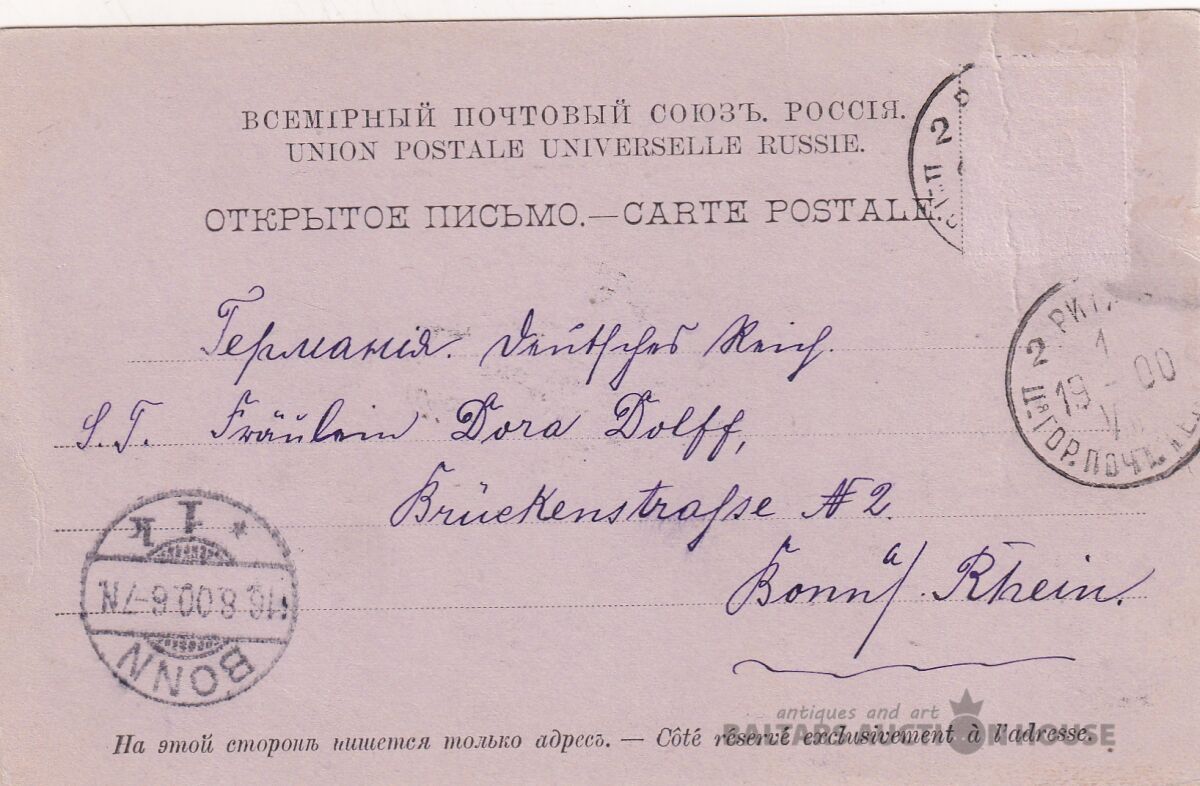 ВСЕМІРНЫЙ ПОЧТОВЫЙ СОЮЗЪ. РОССІЯ.
UNION POSTALE UNIVERSELLE RUSSIE.
ОТКРЫТОЕ ПИСЬМО.—CARTE POSTALE.
2
РИГА
2 1
19 - 00
ГОР. ПОЧТ.
Германія. Deutsches Reich.
S. T. Fräulein Dora Dolff,
Brückenstraſse № 2.
Bonn a/ Rhein.
* 1 k
16.8.00.6-7N.
BONN
antiques and art
BALTARS AUCTION HOUSE
На этой сторонѣ пишется только адресъ. — Côté réservé exclusivement à l'adresse.